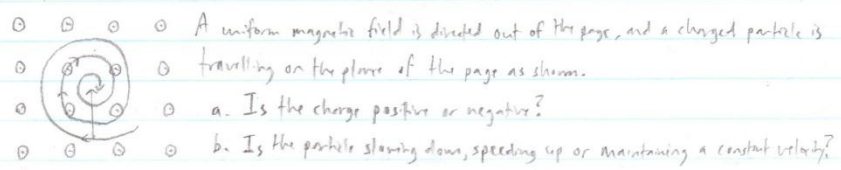 A uniform magnetic field is directed out of the page, and a charged particle is
travelling on the plane of the page as shown.
a. Is the charge positive or negative?
b. Is the particle slowing down, speeding up or maintaining a constant velocity?